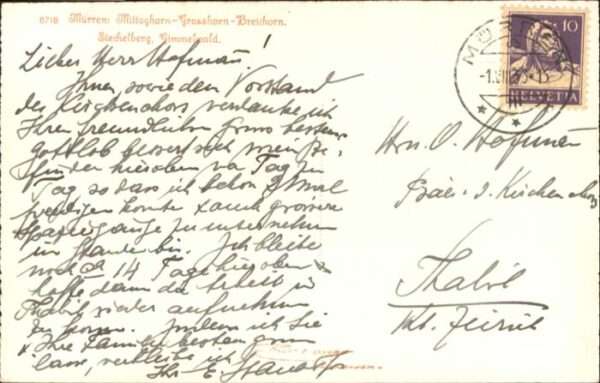 6718 Mürren: Mittaghorn-Grosshorn-Breithorn.
Stechelberg, Gimmelwald.
MÜRREN
10
HELVETIA
Lieber Herr Hofmann!
Ihnen, sowie dem Vorstand
des Kirchenchors verdanke ich
Ihren freundlichen Gruss bestens.
Gottlob bessert sich mein Be-
finden hieroben von Tag zu
Tag, so dass ich schon 2 Mal
predigen konnte & auch grössere
Spaziergänge zu unternehmen
im Stande bin. Ich bleibe
noch 14 Tage hier oben &
hoffe dann die Arbeit in
Thalwil wieder aufnehmen
zu können. Indem ich Sie
& Ihre Familie bestens grüssen
lasse, verbleibe ich
Ihr E.
Hrn. O. Hofmann
Präs. d. Kirchenchors
Thalwil
Kt. Zürich